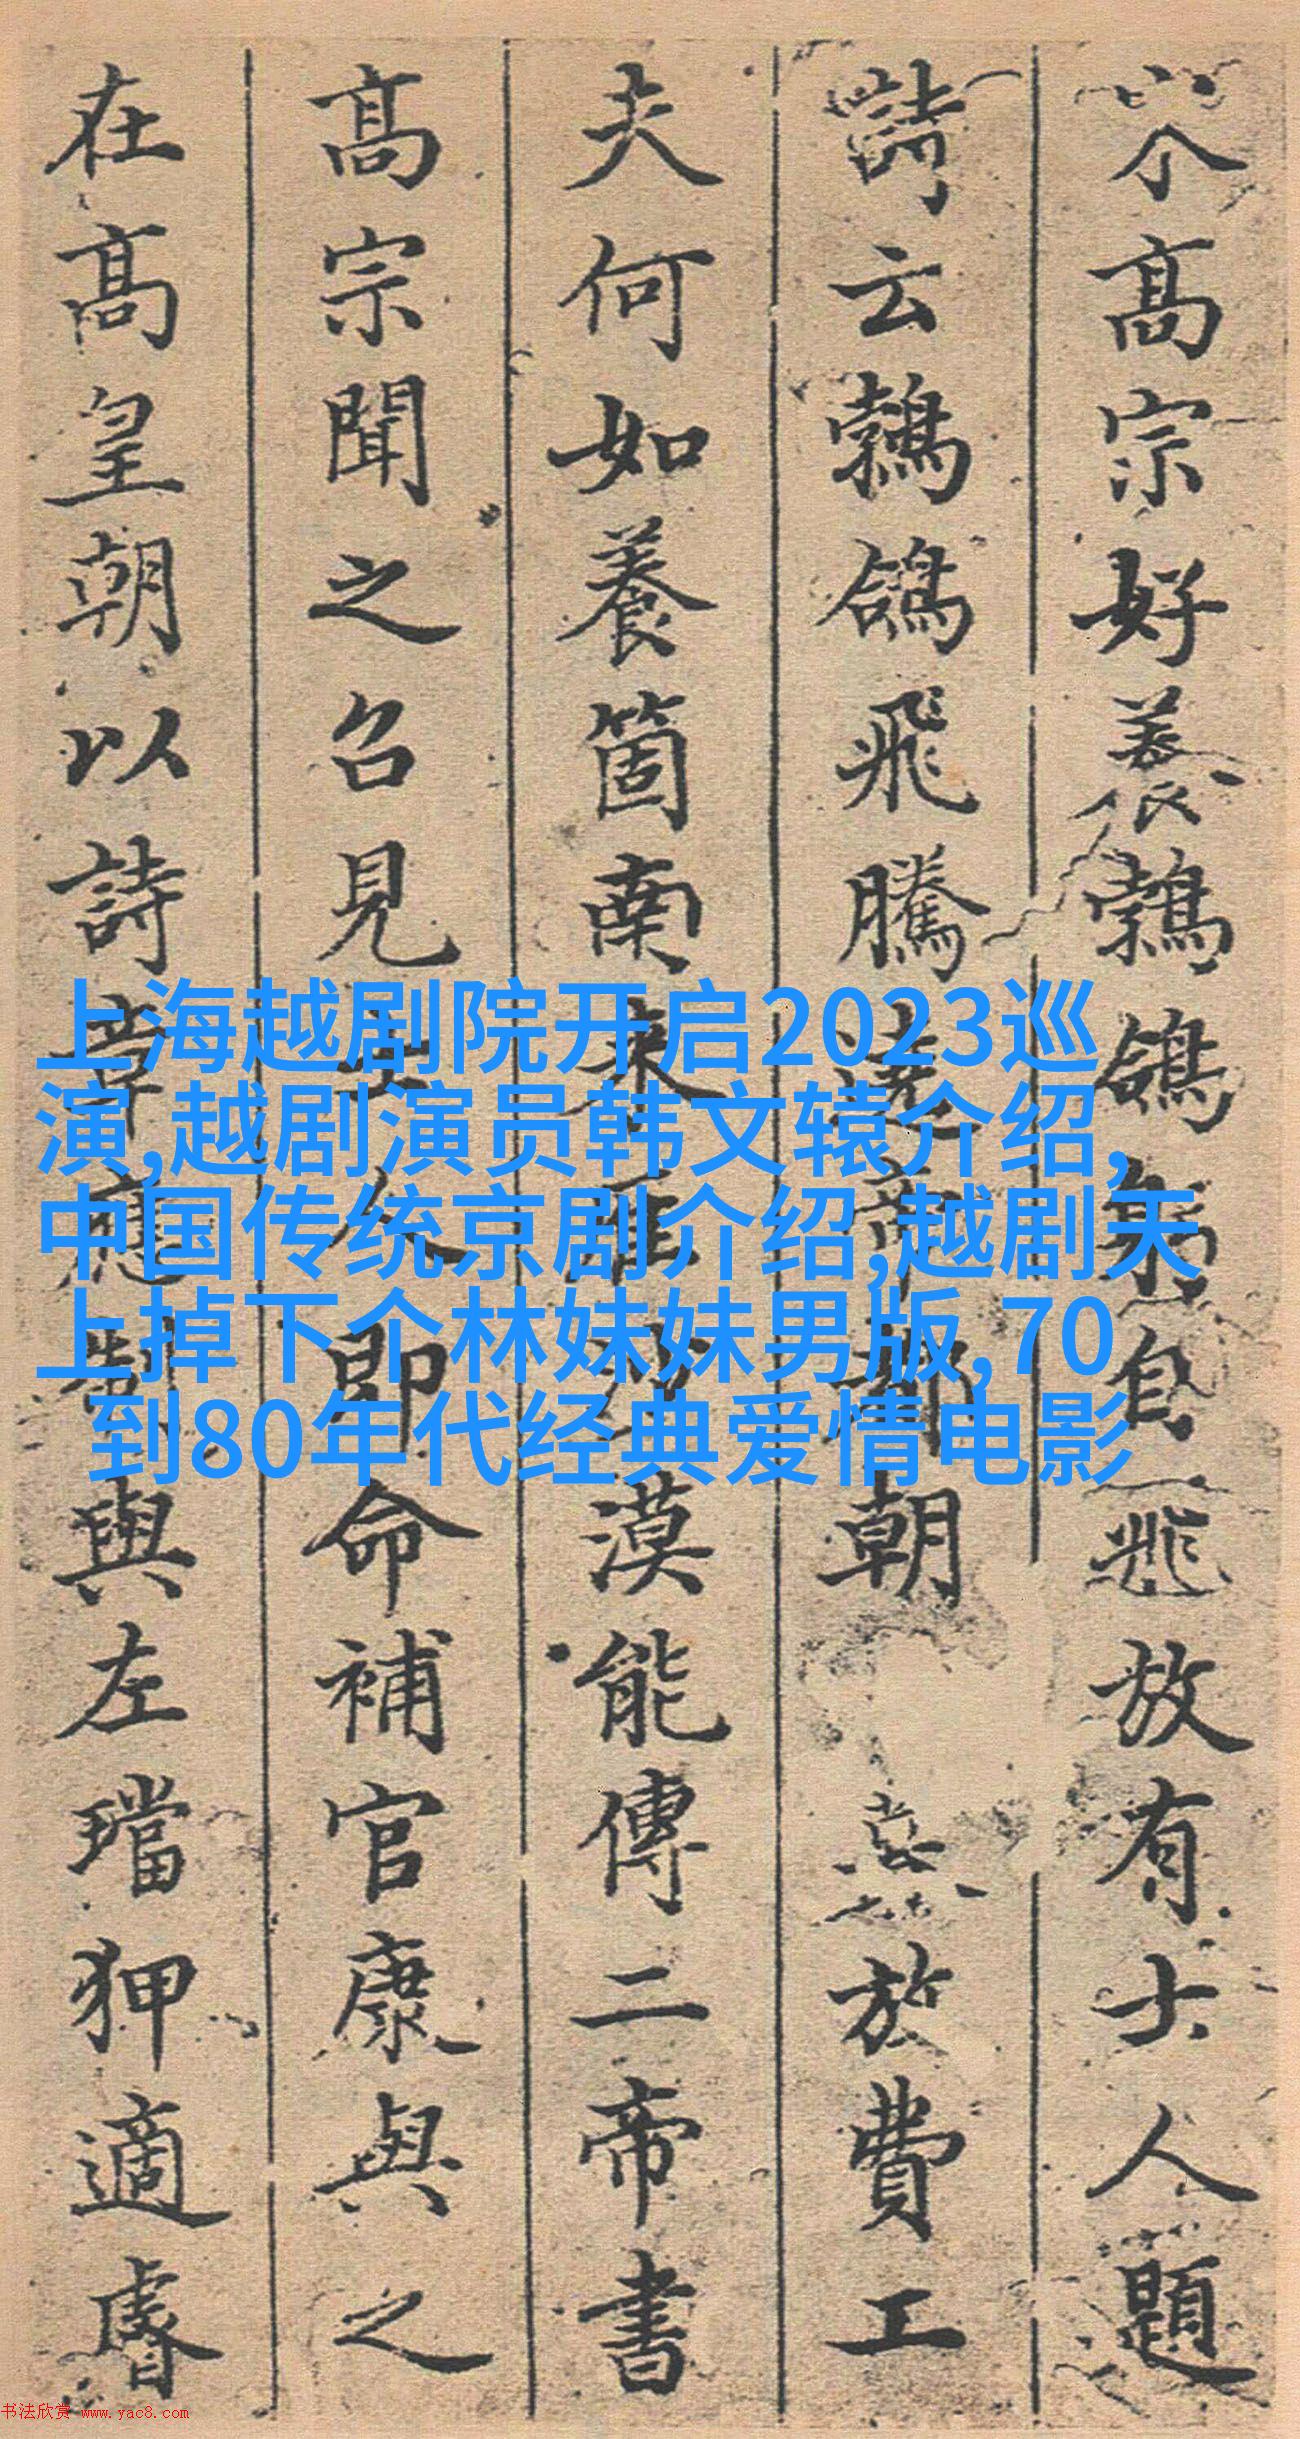 高宗好養鵓鴿自飛放有士人題
詩云鵓鴿飛騰遶帝都朝於費工
夫何如養箇南來沙漠能傳二帝書
高宗聞之召見士人即命補官康與之
在高皇朝以詩章應制與左璫狎適睿
上海越剧院开启2023巡
演,越剧演员韩文辕介绍,
中国传统京剧介绍,越剧天
上掉下个林妹妹男版,70
到80年代经典爱情电影
书法欣赏 www.yac8.com